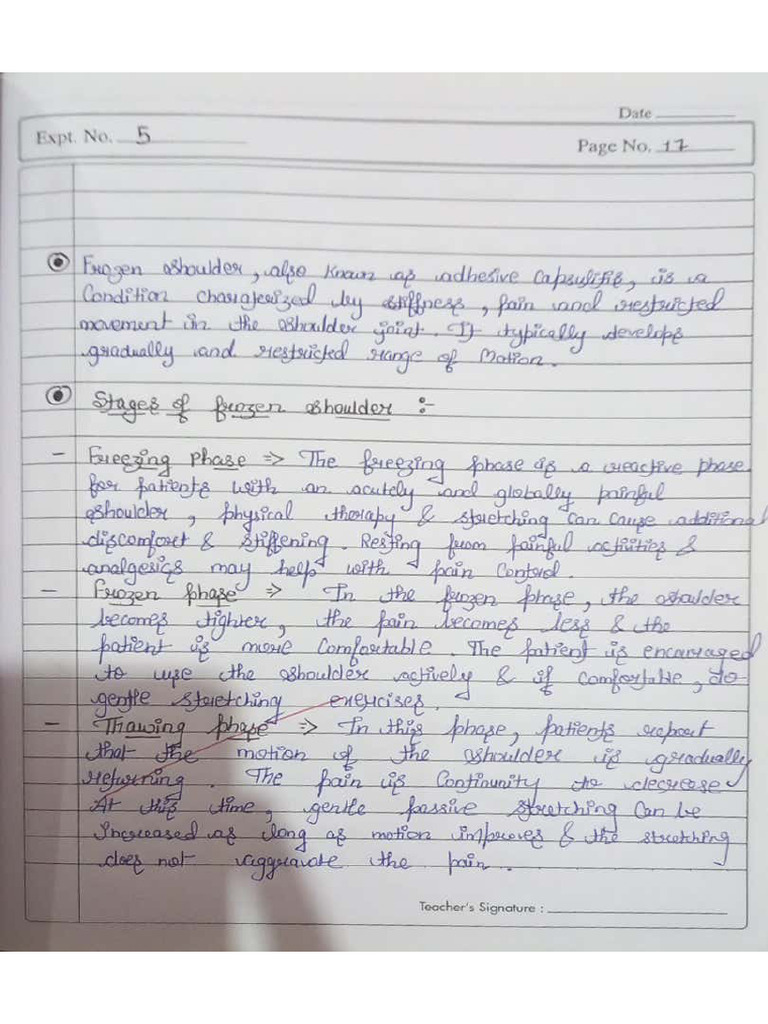 Date
Expt. No. 5
Page No. 17
Frozen shoulder, also known as adhesive capsulitis, is a
Condition charaterized by stiffness, pain and restricted
movement in the shoulder joint. It typically develops
gradually and restricted range of Motion.
Stages of frozen shoulder :-
- Freezing Phase => The freezing phase is a reactive phase
for patients with an acutely and globally painful
shoulder, physical therapy & stretching can cause additional
discomfort & stiffening. Resting from painful activities &
analgesics may help with pain control.
- Frozen phase => In the frozen phase, the shoulder
becomes tighter, the pain becomes less & the
patient is more comfortable. The patient is encouraged
to use the shoulder actively & if comfortable, do
gentle stretching exercises.
- Thawing phase => In this phase, patients report
that the motion of the shoulder is gradually
returning. The pain is Continunity to decrease
At this time, gentle passive stretching can be
Increased as long as motion improves & the stretching
does not aggravate the pain.
Teacher's Signature :